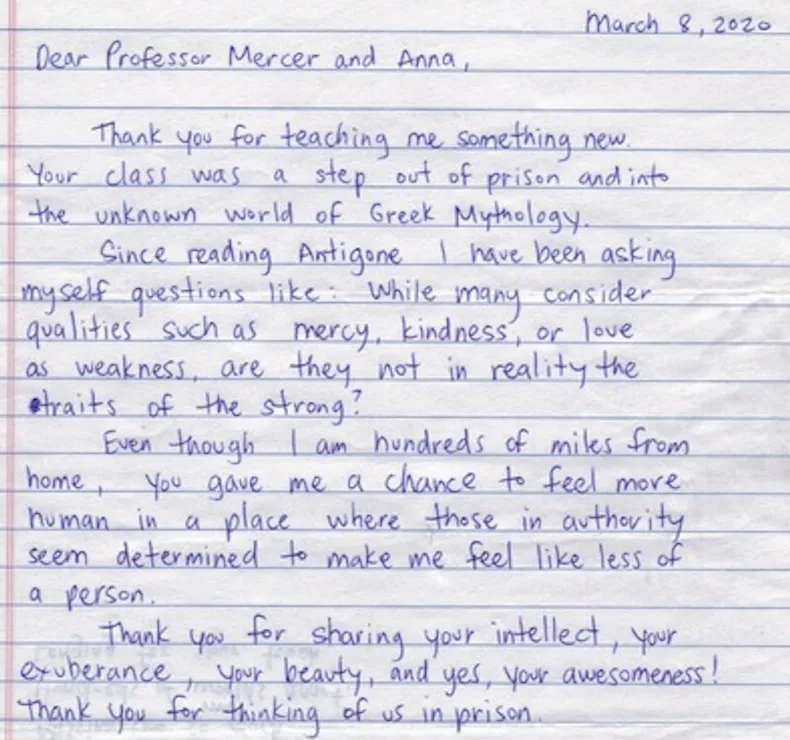 March 8, 2020
Dear Professor Mercer and Anna,
Thank you for teaching me something new.
Your class was a step out of prison and into
the unknown world of Greek Mythology.
Since reading Antigone I have been asking
myself questions like: While many consider
qualities such as mercy, kindness, or love
as weakness, are they not in reality the
traits of the strong?
Even though I am hundreds of miles from
home, you gave me a chance to feel more
human in a place where those in authority
seem determined to make me feel like less of
a person.
Thank you for sharing your intellect, your
exuberance, your beauty, and yes, your awesomeness!
Thank you for thinking of us in prison.